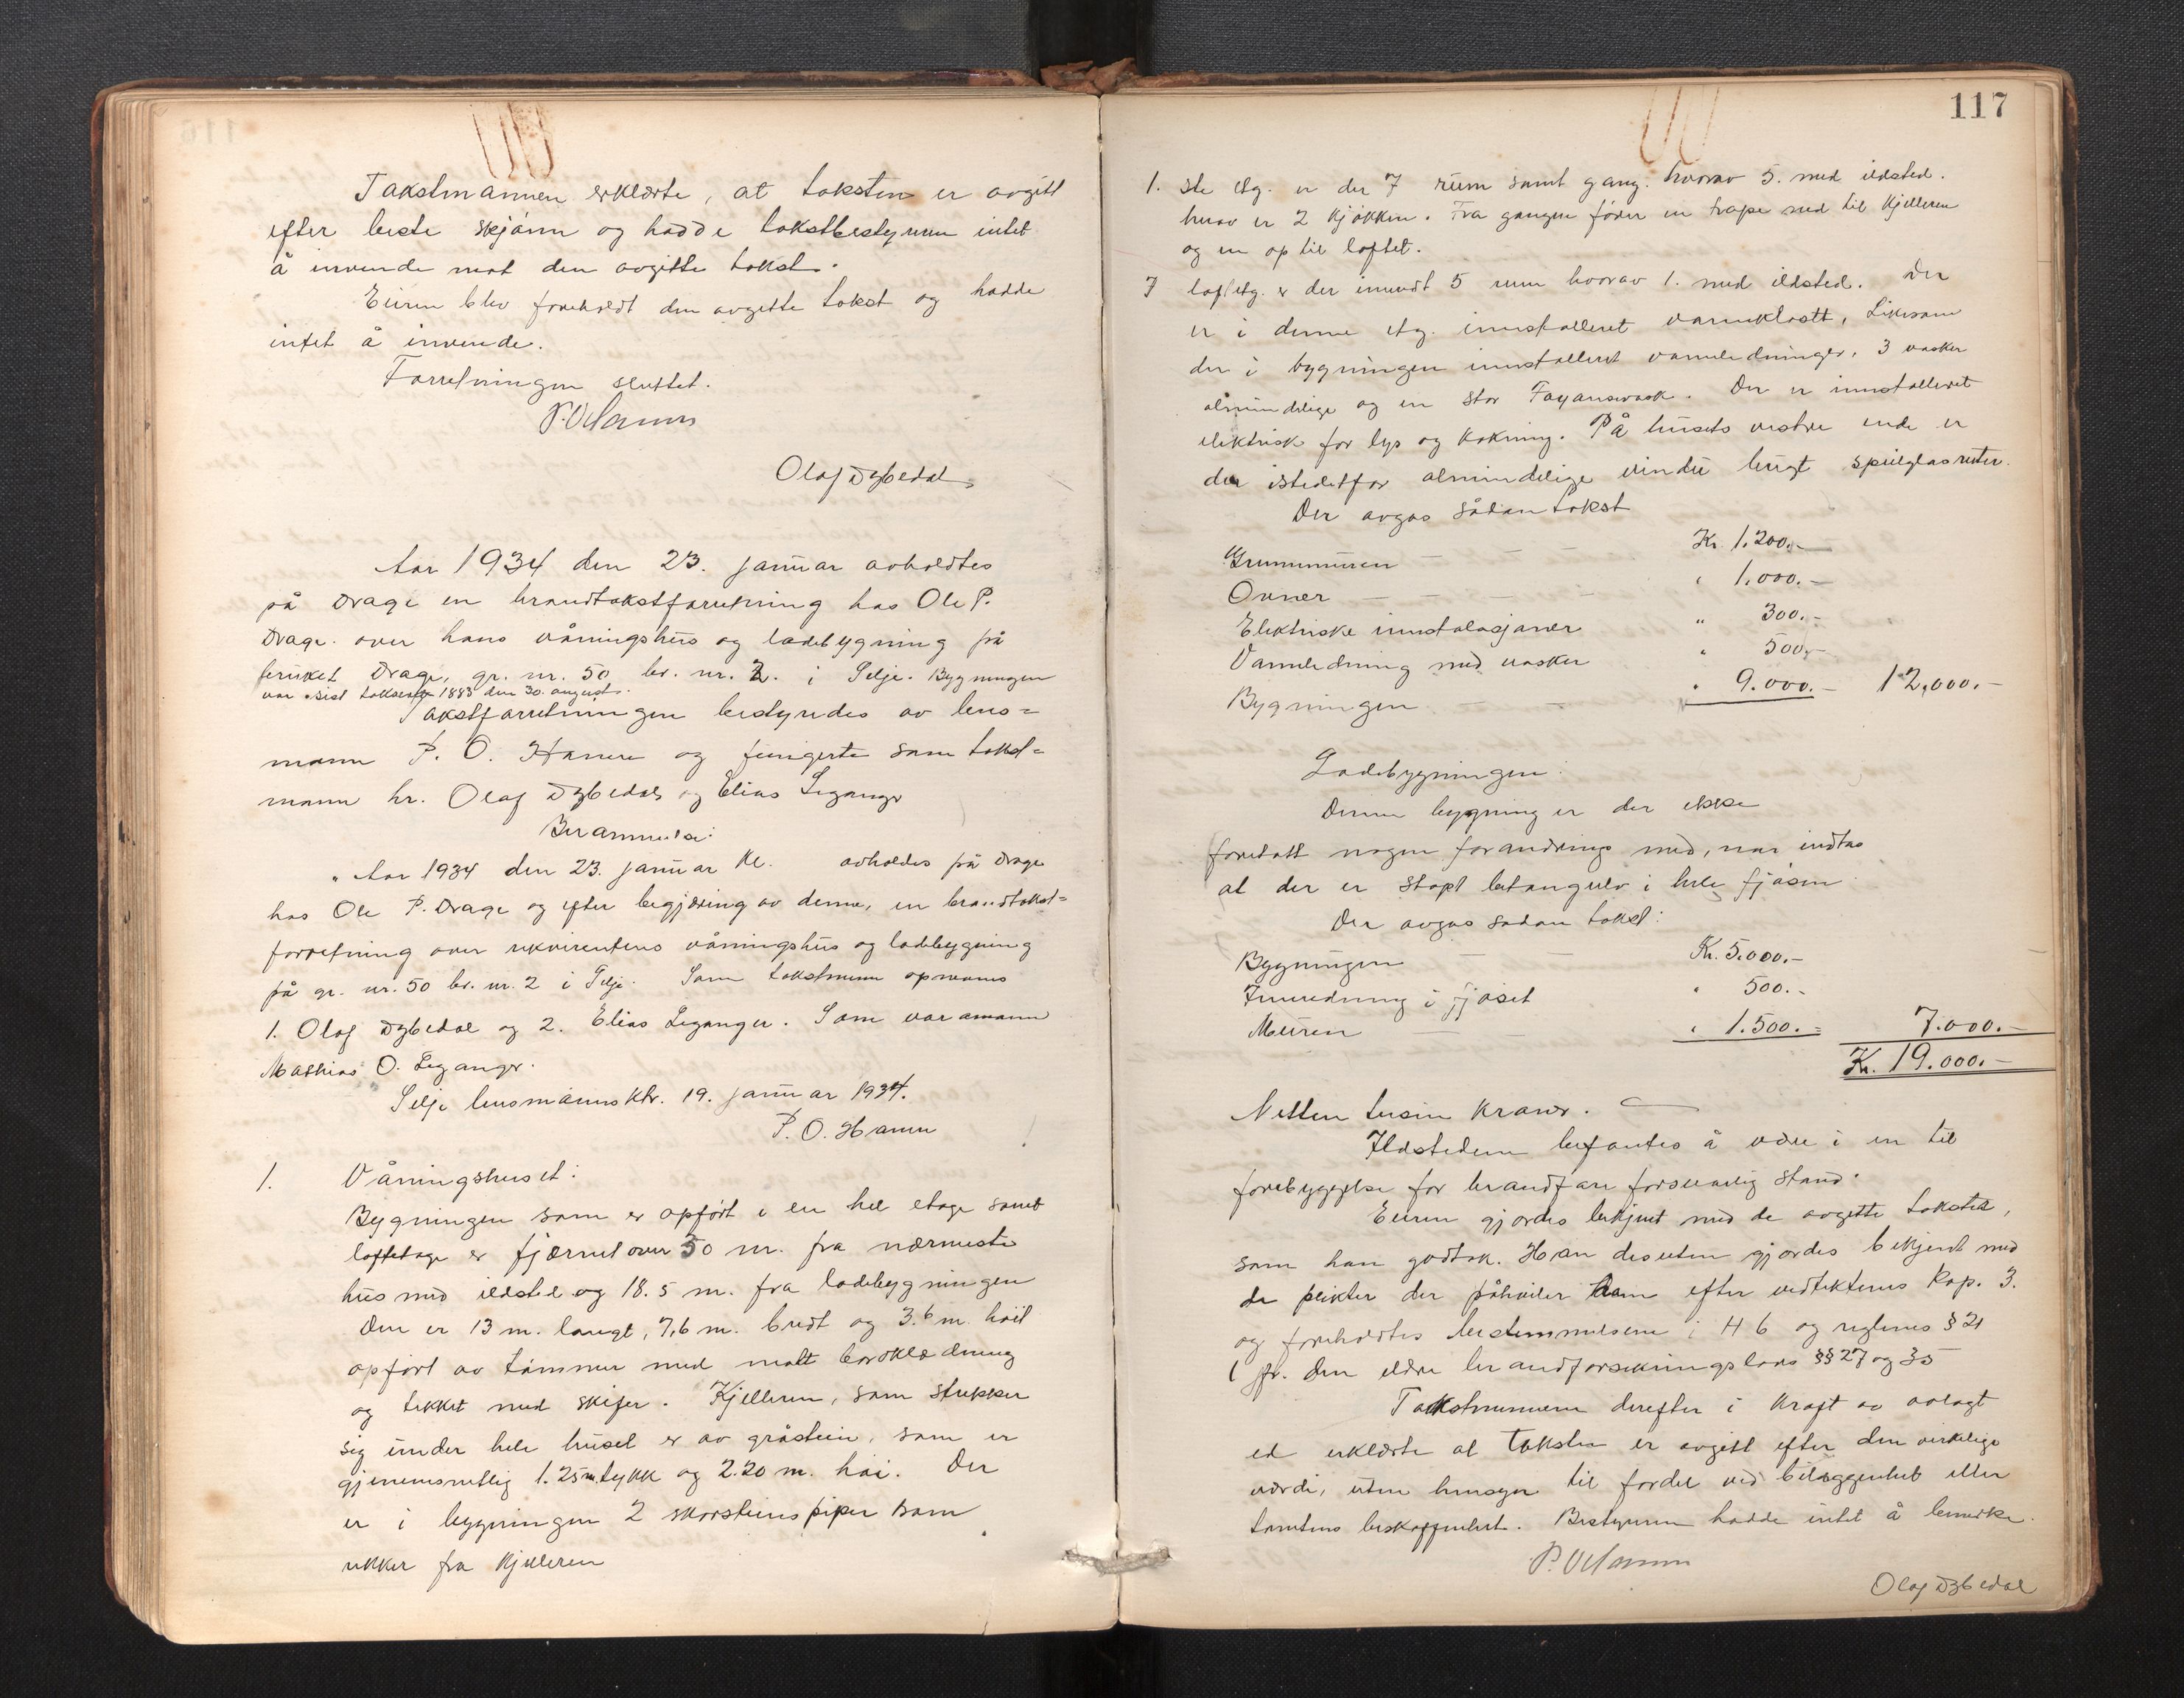 Takstmannen erklærte, at taksten er avgitt
efter beste skjønn og hadde takstbestyreren intet
å invende mot den avgitte takst.
Eieren blev foreholdt den avgitte takst og hadde
intet å invende.
Forretningen sluttet.
P. O. Hamre
Olaf Dybedal
Aar 1934 den 23. januar avholdtes
på Drage en brandtakstforretning hos Ole P.
Drage over hans våningshus og ladebygning på
bruket Drage, gr. nr. 50 br. nr. 2. i Selje. Bygningen
var sist taksert 1883 den 30. august.
Takstforretningen bestyredes av lens=
mann P. O. Hamre og fungerte som takst=
mann hr. Olaf Dybedal og Elias Leganger
Berammelse:
" Aar 1934 den 23. januar kl. avholdes på Drage
hos Ole P. Drage og efter begjæring av denne, en brandtakst=
forretning over rekvirentens våningshus og ladebygning
på gr. nr. 50 br. nr. 2 i Selje. Som takstmenn opnevnes
1. Olaf Dybedal og 2. Elias Leganger. Som varamann
Mathias O. Leganger.
Selje lensmannsktr. 19. januar 1934.
P. O. Hamre
1. Våningshuset:
Bygningen som er opført i en hel etage samt
loftetage er fjærnet over 50 m. fra nærmeste
hus med ildsted og 18.5 m. fra ladebygningen
Den er 13 m. langt, 7,6 m. bredt og 3.6 m. høit
opført av tømmer med malt bordklædning
og tekket med skifer. Kjelleren, som strekker
sig under hele huset er av gråstein, som er
gjenemsnitlig 1.25 m. tykk og 2.20 m. høi. Der
er i bygningen 2 skorsteinspiper som
rekker fra kjelleren
117
1. ste etg. er der 7 rum samt gang. hvorav 5. med ildsted.
herav er 2 kjøkken. Fra gangen fører en trape ned til kjelleren
og en op til loftet.
I loftetg. er der innredt 5 rum hvorav 1. med ildsted. Der
er i denne etg. innstalleret vannklosett, Likesom
der i bygningen innstalleret vannledninger, 3 vasker
almindelige og en stor Fayansevask. Der er innstalleret
elektrisk for lys og kokning. På husets vestre ende er
der istedetfor almindelige vindu brugt speilglasruter.
Der avgas sådan takst
Grunnmuren — — — Kr. 1.200.—
Ovner — — — — " 1.000.—
Elektriske innstalasjoner " 300.—
Vannledning med vasker " 500,—
Bygningen — — " 9.000.— 12,000.—
Ladebygningen:
Denne bygning er der ikke
foretatt nogen forandring med, når indtas
at der er støpt betongulv i hele fjøsen
Der avgas sådan takst:
Bygningen — — Kr. 5.000.—
Innredning i fjøset " 500.—
Muren — — " 1.500.= 7.000.—
Kr. 19.000.—
Nitten tusin kroner.
Ildstedene befantes å være i en til
forebyggelse for brandfare forsvarlig stand.
Eieren gjordes bekjent med de avgitte takster,
som han godtok. Han desuten gjordes bekjent med
de plikter der påhviler ham efter vedtektenes Kap. 3.
og foreholdtes bestemmelsene i H 6 og reglenes § 21
( jfr. den eldre brandforsikringslovs §§ 27 og 35
Takstmennene derefter i kraft av avlagt
ed erklærte at taksten er avgitt efter den virkelige
værdi, uten hensyn til fordel ved beliggenhet eller
tomtens beskaffenhet. Bestyreren hadde intet å bemerke.
P. O. Hamre
Olaf Dybedal